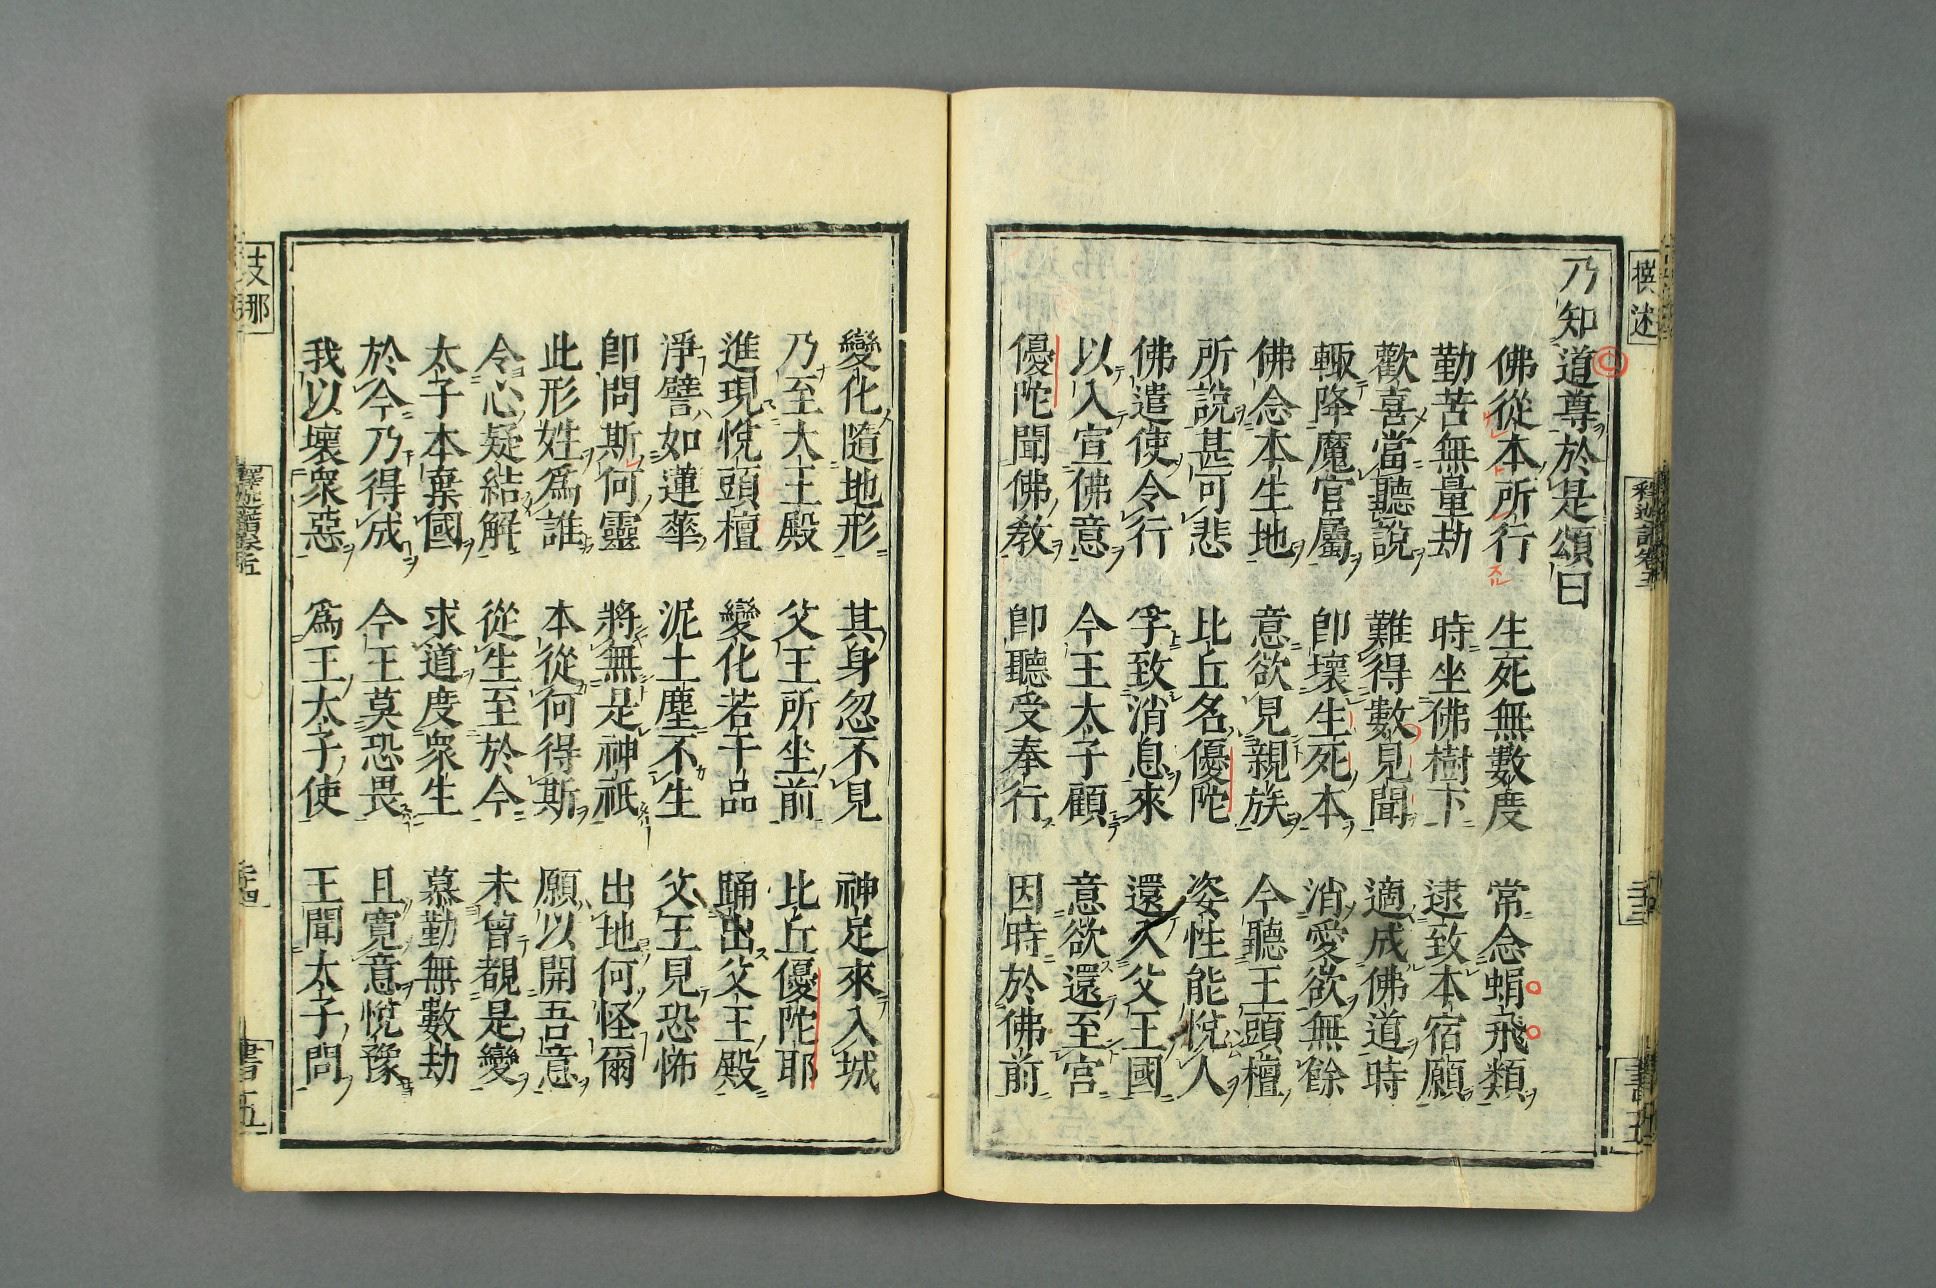 乃知道尊於是頌曰
佛從本所行 生死無數度 常念蜎飛類
勤苦無量劫 時坐佛樹下 逮致本宿願
歡喜當聽說 難得數見聞 適成佛道時
輙降魔官屬 卽壞生死本 消愛欲無餘
佛念本生地 意欲見親族 今聽王頭檀
所說甚可悲 比丘名優陀 姿性能悅人
佛遣使令行 孚致消息來 還入父王國
以入宣佛意 今王太子顧 意欲還至宮
優陀聞佛敎 卽聽受奉行 因時於佛前
變化隨地形 其身忽不見 神足來入城
乃至大王殿 父王所坐前 比丘優陀耶
進現悅頭檀 變化若干品 踊出父王殿
淨譬如蓮華 泥土塵不生 父王見恐怖
卽問斯何靈 將無是神祇 出地何怪爾
此形姓爲誰 本從何得斯 願以開吾意
令心疑結解 從生至於今 未曾覩是變
太子本棄國 求道度衆生 慕勤無數劫
於今乃得成 今王莫恐畏 且寬意悅豫
我以壞衆惡 爲王太子使 王聞太子問